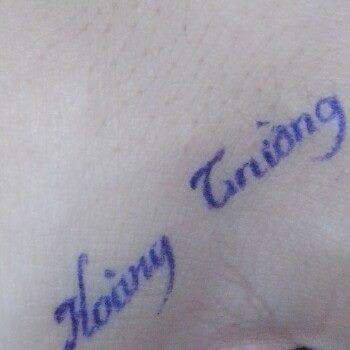 Hoàng Trường